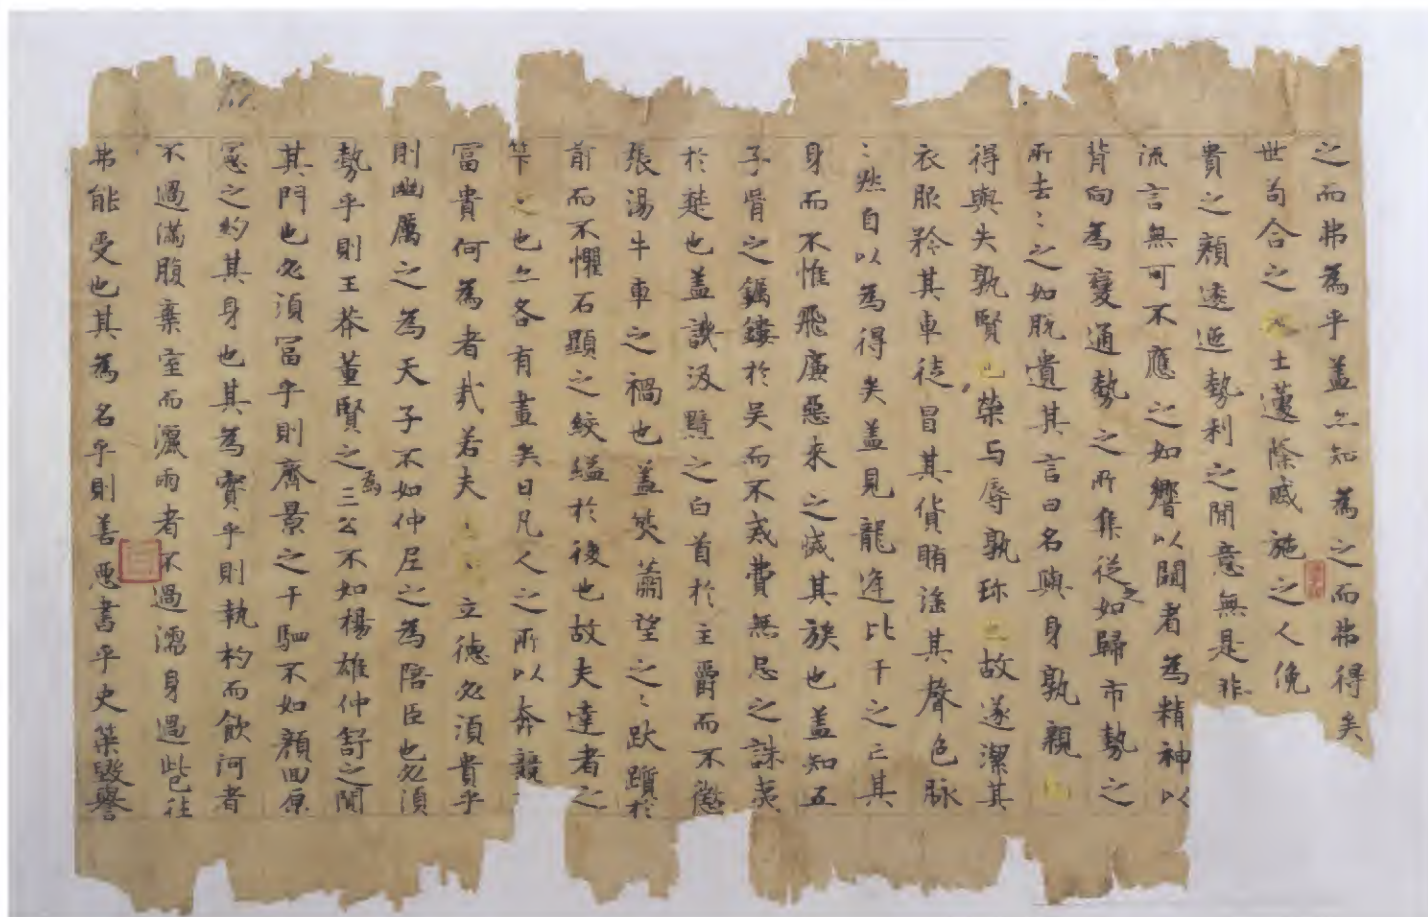 之而弗為乎盖亦知為之而弗得矣
世苟合之士蘧蒢戚施之人俛
貴之顏逶迤勢利之間意無是非
流言無可不應之如響以闚者為精神以
背向為變通勢之所集從之如歸市勢之
所去〻之如脫遺其言曰名與身孰親也
得與失孰賢也榮与辱孰珎也故遂潔其
衣服矜其車徒冒其貨賄淫其聲色脉
〻然自以為得矣盖見龍逄比干之亡其
身而不惟飛廉惡来之滅其族也盖知五
子胥之鐲鏤於吳而不戒費無忌之誅夷
於楚也盖譏汲黯之白首於主爵而不懲
張湯牛車之禍也盖笑蕭望之〻跋躓於
前而不懼石顯之絞縊於後也故夫達者之
筭之也亦各有盡矣曰凡人之所以奔競
富貴何為者哉若夫立德必須貴乎
則幽厲之為天子不如仲尼之為陪臣也必須
勢乎則王莽董賢之為三公不如楊雄仲舒之閒
其門也必須冨乎則齊景之千駟不如顏回原
憲之約其身也其為實乎則執杓而飲河者
不過滿腹棄室而灑雨者不過濡身過此往
弗能受也其為名乎則善惡書乎史筞毀譽